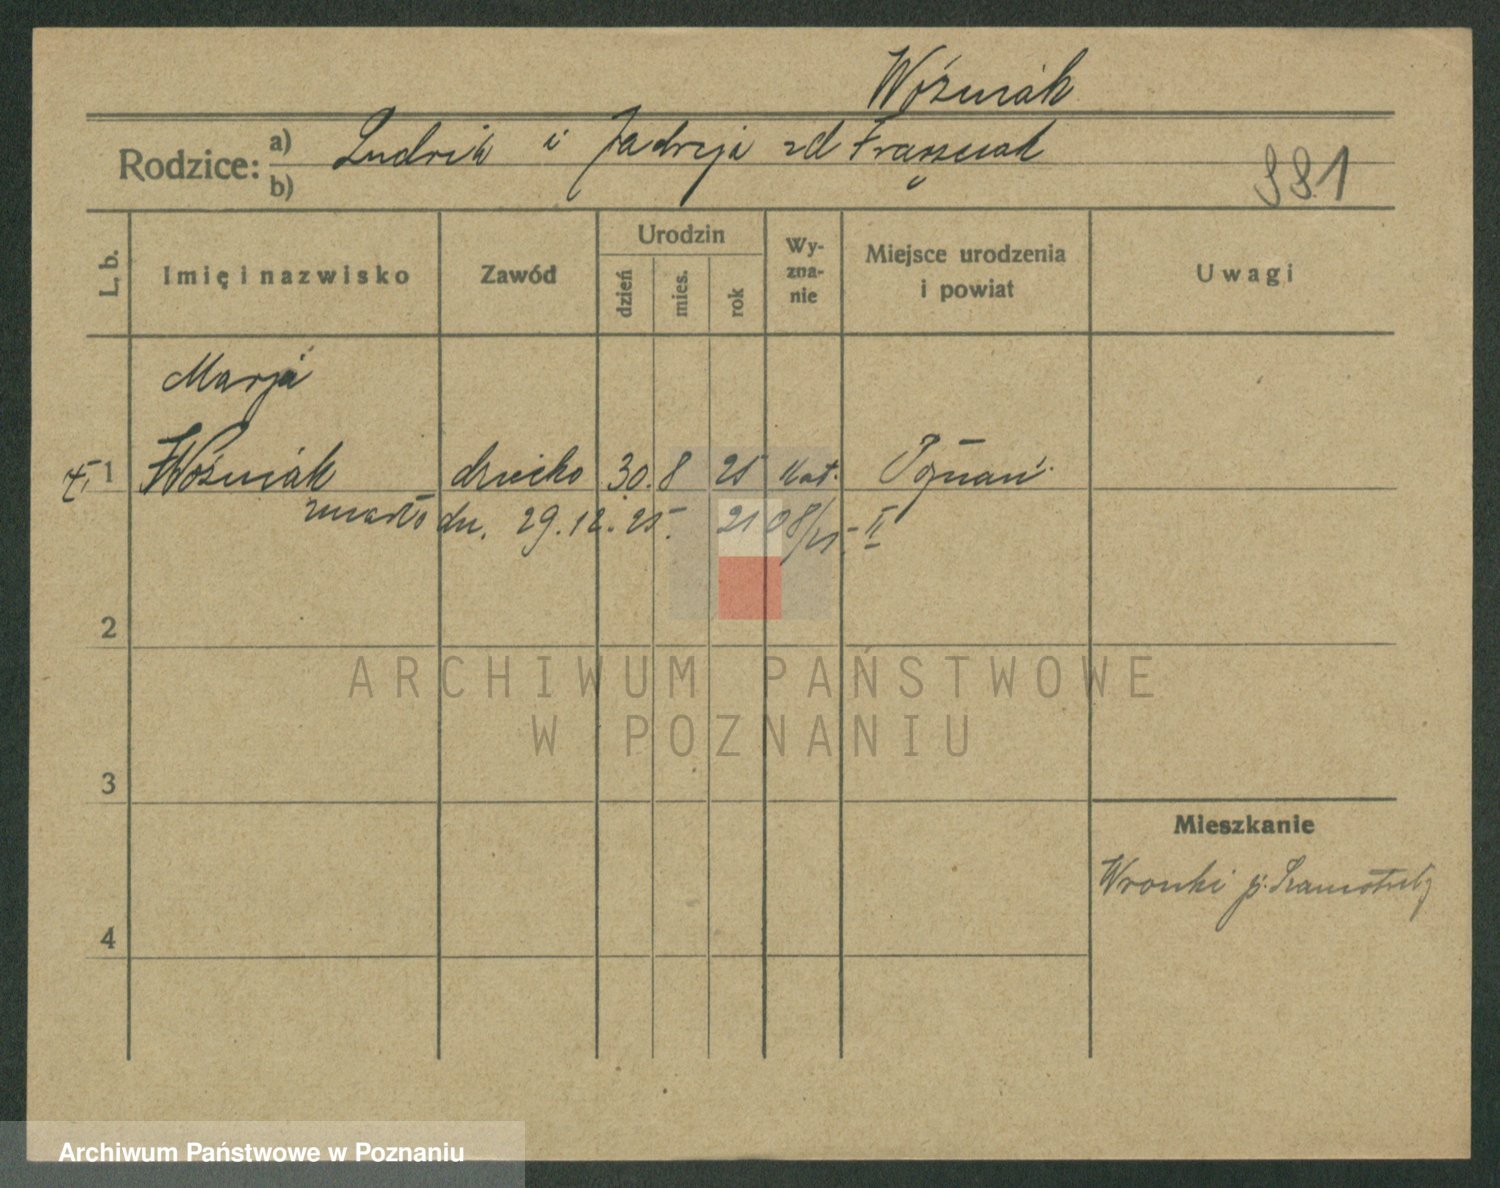 Woźniak
Rodzice: a) Ludwik i Jadwiga zd Frąszczak
b)
981
L. b. Imię i nazwisko Zawód Urodzin dzień mies. rok Wy-zna-nie Miejsce urodzenia i powiat Uwagi
Marja
1 Woźniak dziecko 30. 8 25 kat. Poznań
zmarło dn. 29.12.25. 2108/25. II
2
3
4
Mieszkanie
Wronki p. Szamotuły
ARCHIWUM PAŃSTWOWE
W POZNANIU
Archiwum Państwowe w Poznaniu